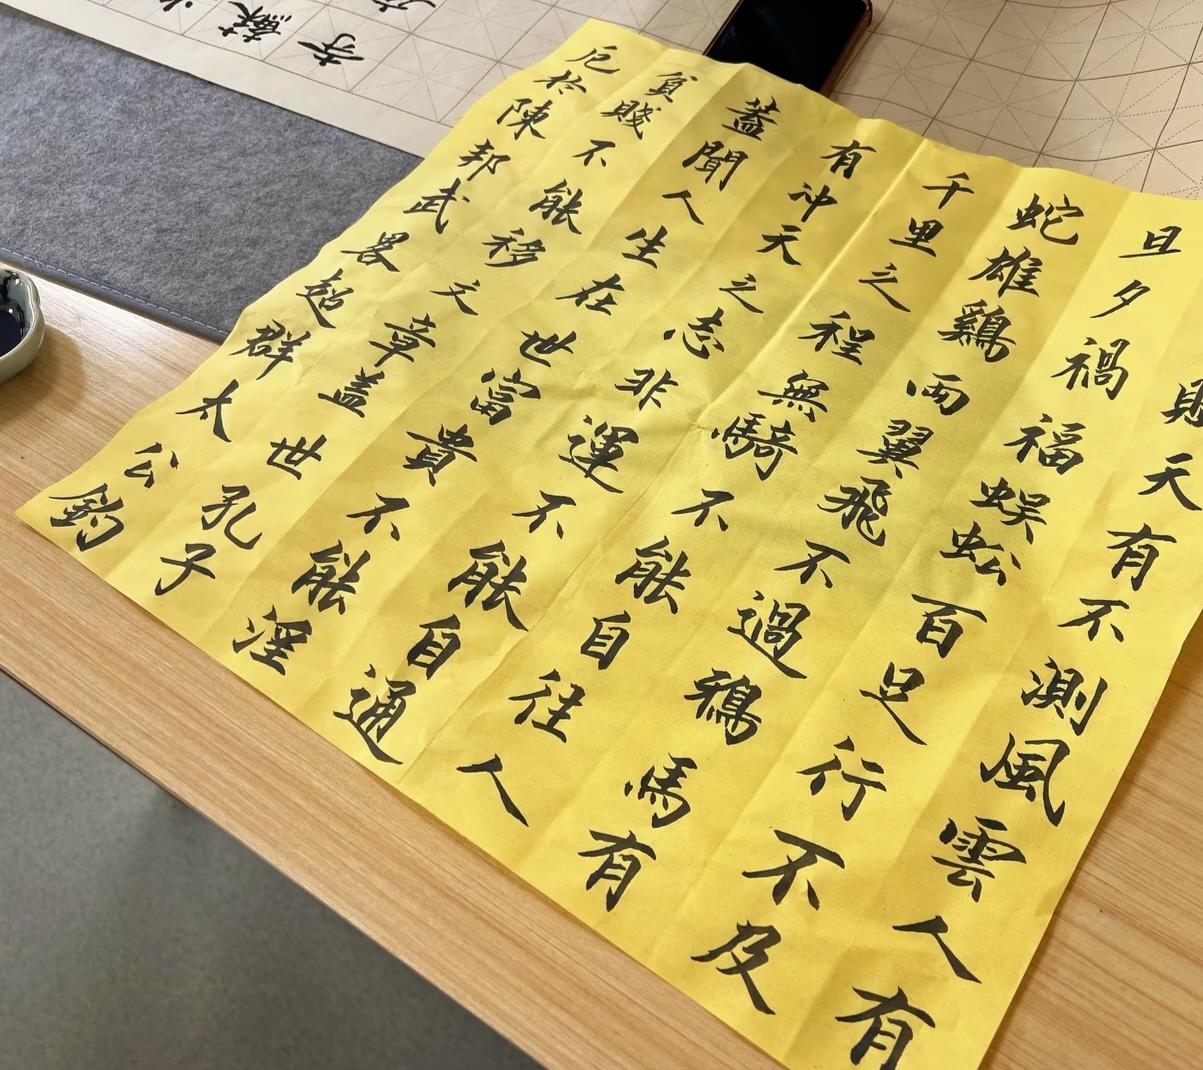 天有不測風雲人有
旦夕禍福蜈蚣百足行不及
蛇雄鷄兩翼飛不過鴉馬有
千里之程無騎不能自往人
有冲天之志非運不能自通
蓋聞人生在世富貴不能淫
貧賤不能移文章盖世孔子
厄於陳邦武畧超群太公釣